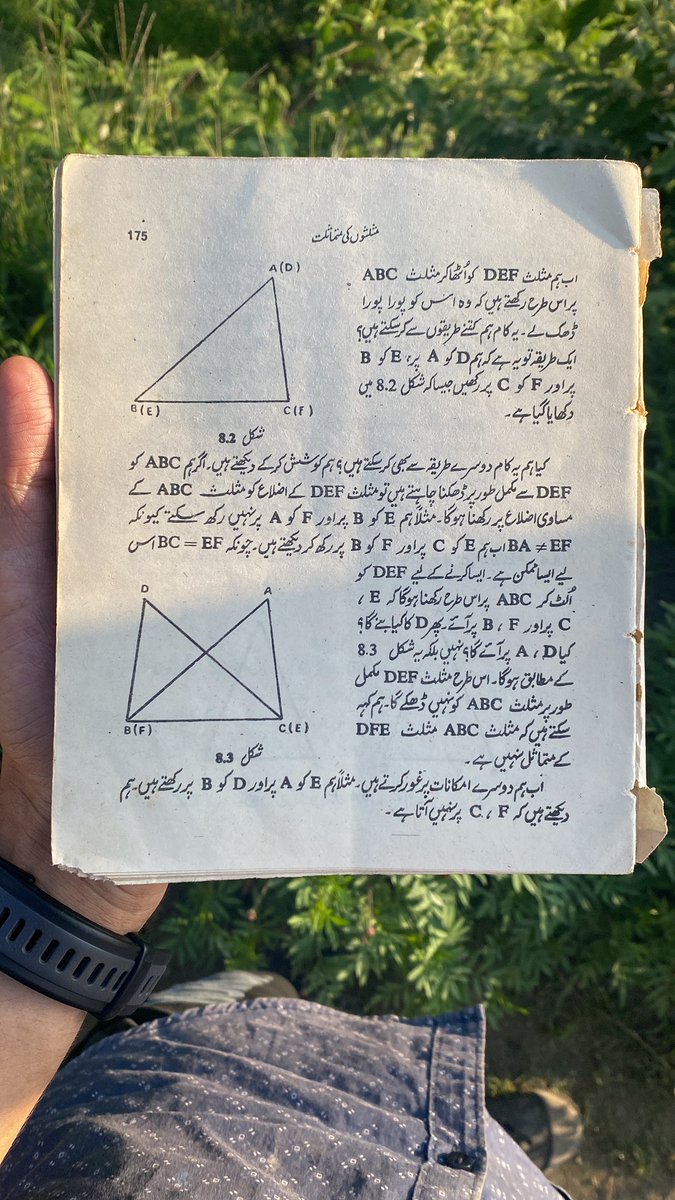 175
مثلثوں کی متماثلت
اب ہم مثلث DEF کو اُٹھا کر مثلث ABC
پر اس طرح رکھتے ہیں کہ وہ اس کو پورا پورا
ڈھک لے۔ یہ کام ہم کتنے طریقوں سے کر سکتے ہیں؟
ایک طریقہ تو یہ ہے کہ ہم D کو A پر، E کو B
پر اور F کو C پر رکھیں جیسا کہ شکل 8.2 میں
دکھایا گیا ہے۔
A(D)
B(E)
C(F)
شکل 8.2
کیا ہم یہ کام دوسرے طریقہ سے بھی کر سکتے ہیں؟ ہم کوشش کر کے دیکھتے ہیں۔ اگر ہم ABC کو
DEF سے مکمل طور پر ڈھکنا چاہتے ہیں تو مثلث DEF کے اضلاع کو مثلث ABC کے
مساوی اضلاع پر رکھنا ہوگا۔ مثلاً ہم E کو B پر اور F کو A پر نہیں رکھ سکتے کیونکہ
BA ≠ EF اب ہم E کو C پر اور F کو B پر رکھ کر دیکھتے ہیں۔ چونکہ BC = EF اس
لیے ایسا ممکن ہے۔ ایسا کرنے کے لیے DEF کو
اُلٹ کر ABC پر اس طرح رکھنا ہوگا کہ E ،
C پر اور F ، B پر آئے۔ پھر D کا کیا بنے گا؟
کیا D ، A پر آئے گا؟ نہیں بلکہ یہ شکل 8.3
کے مطابق ہوگا۔ اس طرح مثلث DEF مکمل
طور پر مثلث ABC کو نہیں ڈھکے گا۔ ہم کہہ
سکتے ہیں کہ مثلث ABC مثلث DFE
کے متماثل نہیں ہے۔
D
A
B(F)
C(E)
شکل 8.3
اب ہم دوسرے امکانات پر غور کرتے ہیں۔ مثلاً ہم E کو A پر اور D کو B پر رکھتے ہیں۔ ہم
دیکھتے ہیں کہ C ، F پر نہیں آتا ہے۔